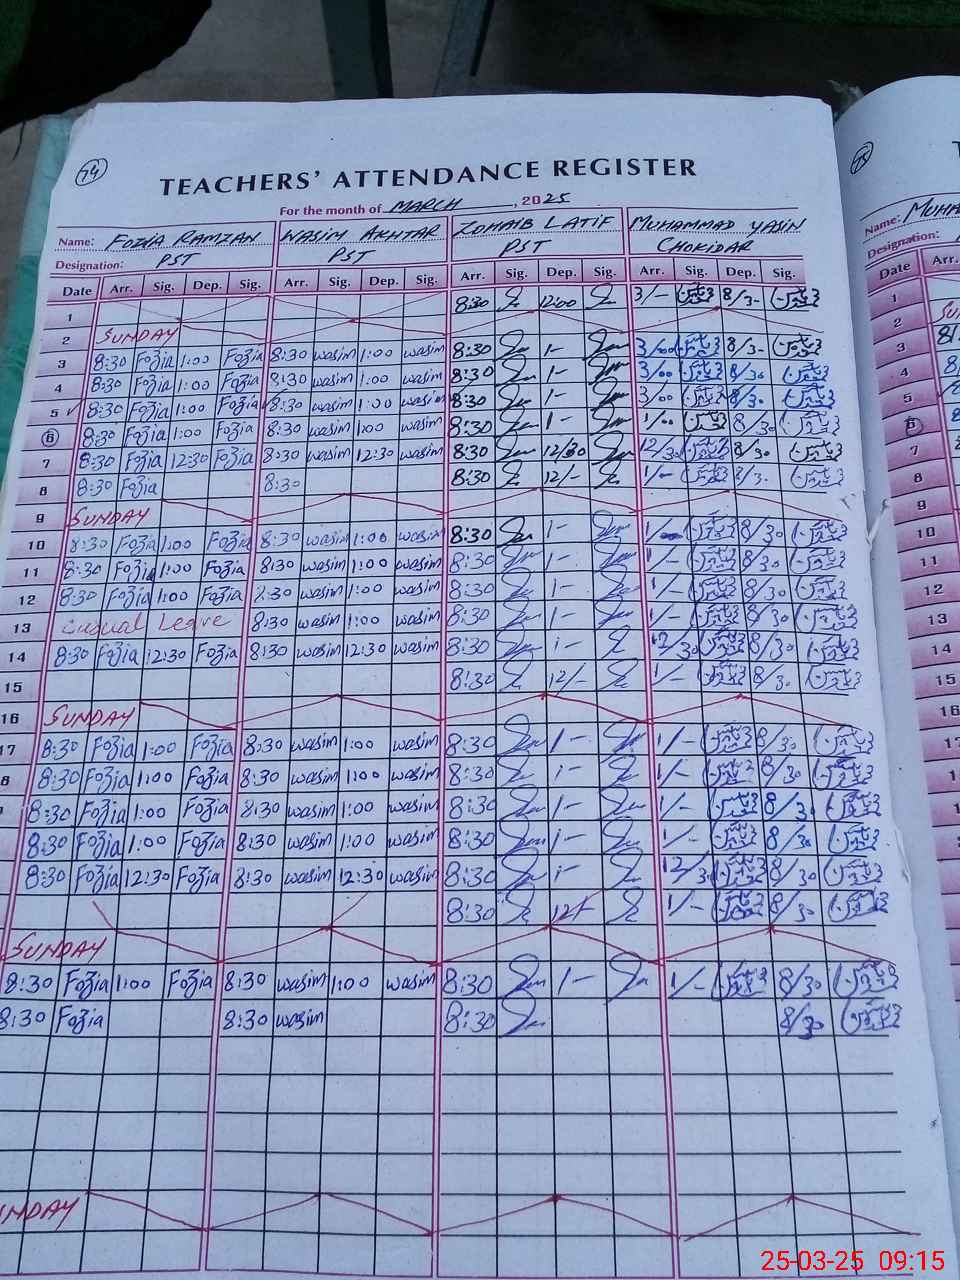 74
TEACHERS' ATTENDANCE REGISTER
For the month of MARCH, 2025
Name: FOZIA RAMZAN WASIM AKHTAR ZOHAIB LATIF MUHAMMAD YASIN
Designation: PST PST PST CHOKIDAR
Date Arr. Sig. Dep. Sig. Arr. Sig. Dep. Sig. Arr. Sig. Dep. Sig. Arr. Sig. Dep. Sig.
1 8:30 12:00 3/- 8/30
2 SUNDAY
3 8:30 Fozia 1:00 Fozia 8:30 wasim 1:00 wasim 8:30 1- 3/00 8/30
4 8:30 Fozia 1:00 Fozia 8:30 wasim 1:00 wasim 8:30 1- 3/00 8/30
5 8:30 Fozia 1:00 Fozia 8:30 wasim 1:00 wasim 8:30 1- 3/00 8/30
6 8:30 Fozia 1:00 Fozia 8:30 wasim 1:00 wasim 8:30 1- 1/00 8/30
7 8:30 Fozia 12:30 Fozia 8:30 wasim 12:30 wasim 8:30 12/30 12/30 8/30
8 8:30 Fozia 8:30 8:30 12/- 1/- 8/30
9 SUNDAY
10 8:30 Fozia 1:00 Fozia 8:30 wasim 1:00 wasim 8:30 1- 1/- 8/30
11 8:30 Fozia 1:00 Fozia 8:30 wasim 1:00 wasim 8:30 1- 1/- 8/30
12 8:30 Fozia 1:00 Fozia 8:30 wasim 1:00 wasim 8:30 1- 1/- 8/30
13 Casual Leave 8:30 wasim 1:00 wasim 8:30 1- 1/- 8/30
14 8:30 Fozia 12:30 Fozia 8:30 wasim 12:30 wasim 8:30 1- 12/30 8/30
15 8:30 12/- 1/- 8/30
16 SUNDAY
17 8:30 Fozia 1:00 Fozia 8:30 wasim 1:00 wasim 8:30 1- 1/- 8/30
8 8:30 Fozia 1:00 Fozia 8:30 wasim 1:00 wasim 8:30 1- 1/- 8/30
8:30 Fozia 1:00 Fozia 8:30 wasim 1:00 wasim 8:30 1- 1/- 8/30
8:30 Fozia 1:00 Fozia 8:30 wasim 1:00 wasim 8:30 1- 1/- 8/30
8:30 Fozia 12:30 Fozia 8:30 wasim 12:30 wasim 8:30 1- 12/30 8/30
8:30 12/- 1/- 8/30
SUNDAY
8:30 Fozia 1:00 Fozia 8:30 wasim 1:00 wasim 8:30 1- 1/- 8/30
8:30 Fozia 8:30 wasim 8:30 8/30
NDAY
75
Name: MUHA
Designation:
Date Arr.
1
2 SU
3
4
5
6
7
8
9
10
11
12
13
14
15
16
25-03-25 09:15